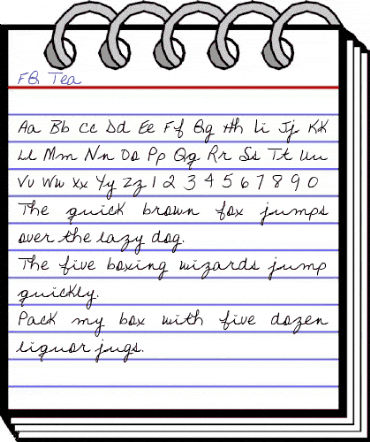 FB Tea
Aa Bb Cc Dd Ee Ff Gg Hh Ii Jj Kk
Ll Mm Nn Oo Pp Qq Rr Ss Tt Uu
Vv Ww Xx Yy Zz 1 2 3 4 5 6 7 8 9 0
The quick brown fox jumps
over the lazy dog.
The five boxing wizards jump
quickly.
Pack my box with five dozen
liquor jugs.